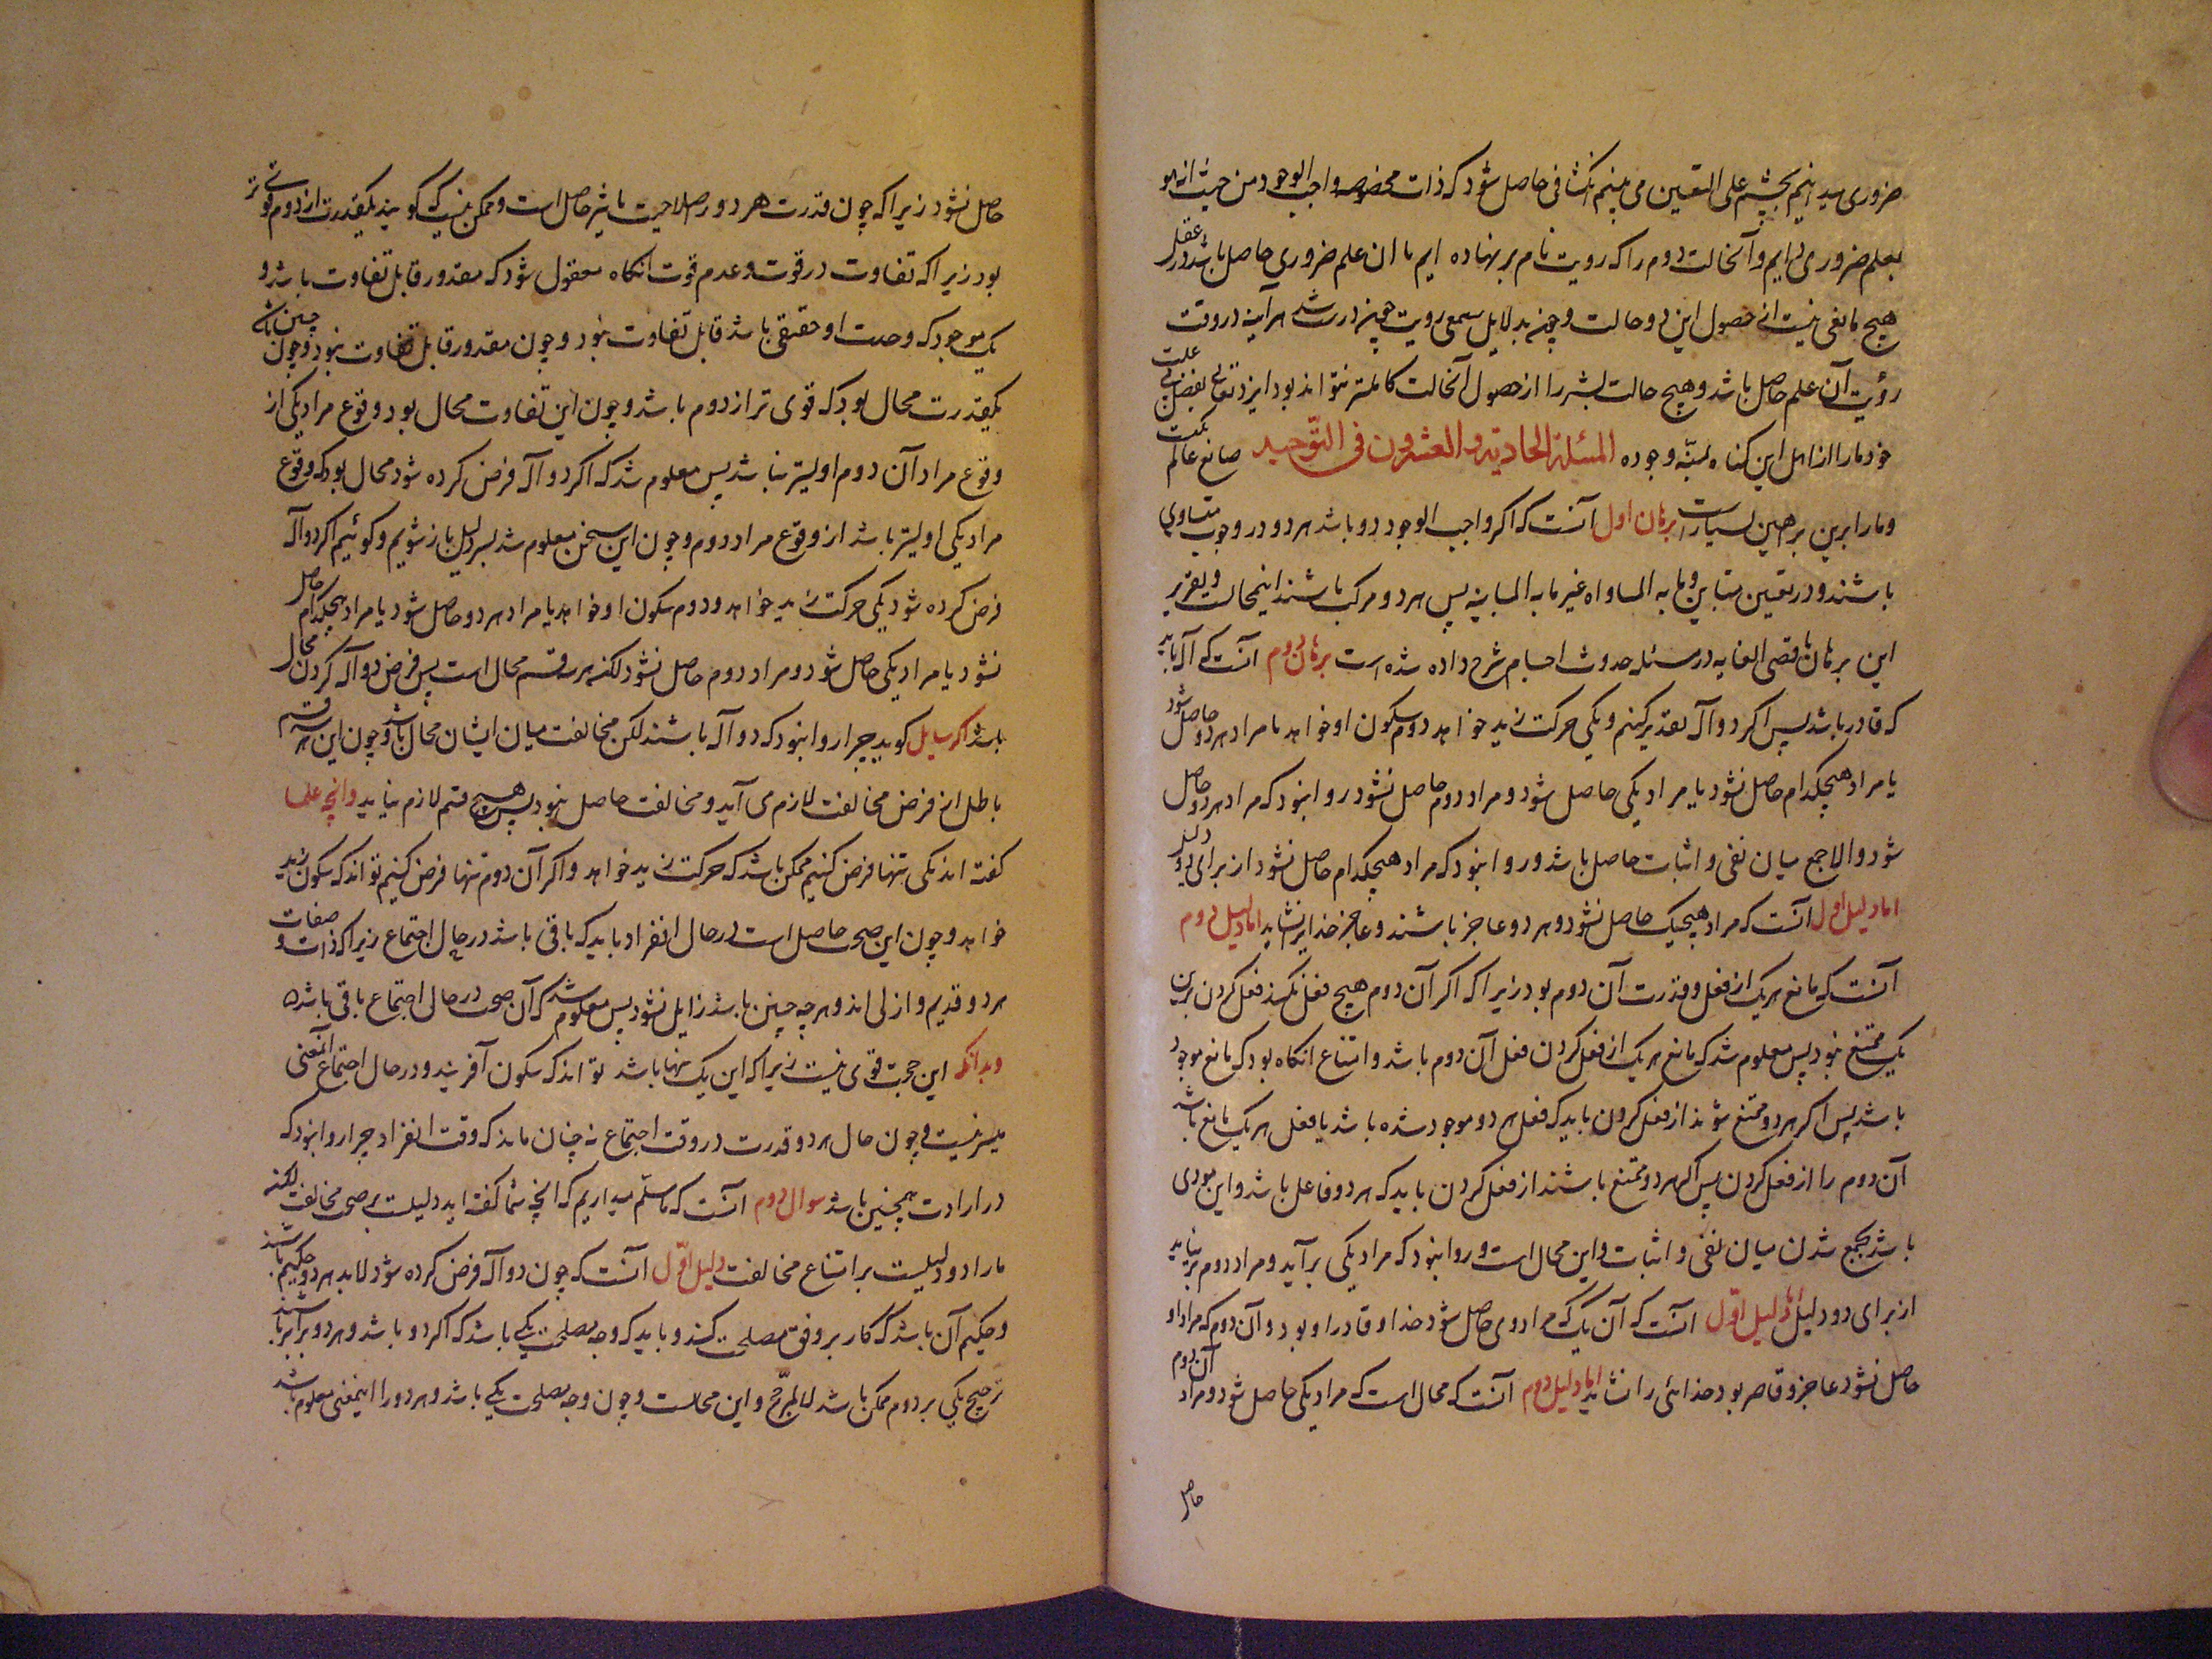 ضروری میدانیم بچشم علی التعیین می بینیم انکشافی حاصل شود که ذات مخصوصه واجب الوجود من حیث انه هو
بعلم ضروری دانیم و آنحالت دوم را که رویت نام بر نهاده ایم با ان علم ضروری حاصل باشد و در عقل
هیچ مانعی نیست از حصول این دو حالت و چون بدلایل سمعی رویت درست شد هرآینه در وقت
رؤیت آن علم حاصل باشد و هیچ حالت بشر را از حصول آنحالت کاملتر نتواند بود ایزد تعالی بفضل بی علت
خود ما را از اهل این کناد بمنّه وجوده المسئلة الحادیة والعشرون فی التّوحید صانع عالم یکیست
و ما را برین براهین بسیار است برهان اول آنست که اکر واجب الوجود دو باشد هر دو در وجوب متساوی
باشند و در تعین متباین و ما به المساواه غیر ما به المباینه پس هر دو مرکب باشند اینمحالست و تقریر
این برهان باقصی الغایه در مسئله حدوث اجسام شرح داده شده است برهان دوم آنست که آله باید
که قادر باشد پس اکر دو آله تقدیر کنیم و یکی حرکت زید خواهد و دوم سکون او خواهد یا مراد هر دو حاصل شود
یا مراد هیچکدام حاصل نشود یا مراد یکی حاصل شود و مراد دوم حاصل نشود روا نبود که مراد هر دو حاصل
شود والا جمع میان نفی و اثبات حاصل باشد و روا نبود که مراد هیچکدام حاصل نشود از برای دو دلیل
اما دلیل اول آنست که مراد هیچیک حاصل نشود و هر دو عاجز باشند و عاجز خدایرا نشاید اما دلیل دوم
آنست که مانع هر یک از فعل و قدرت آن دوم بود زیرا که اکر آن دوم هیچ فعل نکند فعل کردن برین
یک ممتنع نبود پس معلوم شد که مانع هر یک از فعل کردن فعل آن دوم باشد و امتناع انکاه بود که مانع موجود
باشد پس اکر هر دو ممتنع شوند از فعل کردن باید که فعل هر دو موجود شده باشد یا فعل هر یک مانع باشد
آن دوم را از فعل کردن پس اکر هر دو ممتنع باشند از فعل کردن باید که هر دو فاعل باشد و این مودی
باشد بجمع شدن میان نفی و اثبات و این محال است و روا نبود که مراد یکی برآید و مراد دوم برنیاید
از برای دو دلیل اما دلیل اول آنست که آن یک که مراد وی حاصل شود خدا و قادر او بود و آن دوم که مراد او
حاصل نشود عاجز و قاصر بود خدائی را نشاید اما دلیل دوم آنست که محال است که مراد یکی حاصل شود و مراد آن دوم
حاصل
حاصل نشود زیرا که چون قدرت هر دو را صلاحیت تاثیر حاصل است و ممکن نیست که کویند یکقدرت از دوم قوی تر
بود زیرا که تفاوت در قوت و عدم قوت انکاه معقول شود که مقدور قابل تفاوت باشد و
یک موجود که وحدت او حقیقی باشد قابل تفاوت نبود و چون مقدور قابل تفاوت نبود و چون چنین باشد
یکقدرت محال بود که قوی تر از دوم باشد و چون این تفاوت محال بود وقوع مراد یکی از
وقوع مراد آن دوم اولیتر نباشد پس معلوم شد که اکر دو آله فرض کرده شود محال بود که وقوع
مراد یکی اولیتر باشد از وقوع مراد دوم و چون این سخن معلوم شد بسر دلیل باز شویم و کوئیم اکر دو آله
فرض کرده شود یکی حرکت زید خواهد و دوم سکون او خواهد یا مراد هر دو حاصل شود یا مراد هیچکدام حاصل
نشود یا مراد یکی حاصل شود و مراد دوم حاصل نشود لکن هر سه قسم محال است پس فرض دو آله کردن محال
باشد اکر سایل کوید چرا روا نبود که دو آله باشند لکن مخالفت میان ایشان محال باشد و چون این هر سه قسم
باطل از فرض مخالفت لازم می آید و مخالفت حاصل نبود پس هیچ قسم لازم نیاید و آنچه علما
کفته اند یکی تنها فرض کنیم ممکن باشد که حرکت زید خواهد و اکر آن دوم تنها فرض کنیم تواند که سکون زید
خواهد و چون این صحت حاصل است در حال انفراد باید که باقی باشد در حال اجتماع زیرا که ذات و صفات
هر دو قدیم و ازلی اند و هر چه چنین باشد زایل نشود پس معلوم شد که آن صحت در حال اجتماع باقی باشد
و بدانکه این حجت قوی نیست زیرا که این یک تنها باشد تواند که سکون آفریند و در حال اجتماع آنمعنی
میسر نیست و چون حال هر دو قدرت در وقت اجتماع نه چنان ماند که وقت انفراد چرا روا نبود که
در ارادت همچنین باشد سوال دوم آنست که مسلّم میداریم که آنچه شما کفته اید دلیلست بر صحت مخالفت لکن
ما را دو دلیلست بر امتناع مخالفت دلیل اوّل آنست که چون دو آله فرض کرده شود لابد هر دو حکیم باشند
و حکیم آن باشد که کار بر وفق مصلحت کند و باید که وجه مصلحت یکی باشد که اکر دو باشد و هر دو برابر باشند
ترجیح یکی بر دوم ممکن باشد لا لمرجّح و این محالست و چون وجه مصلحت یکی باشد و هر دو را اینمعنی معلوم باشد